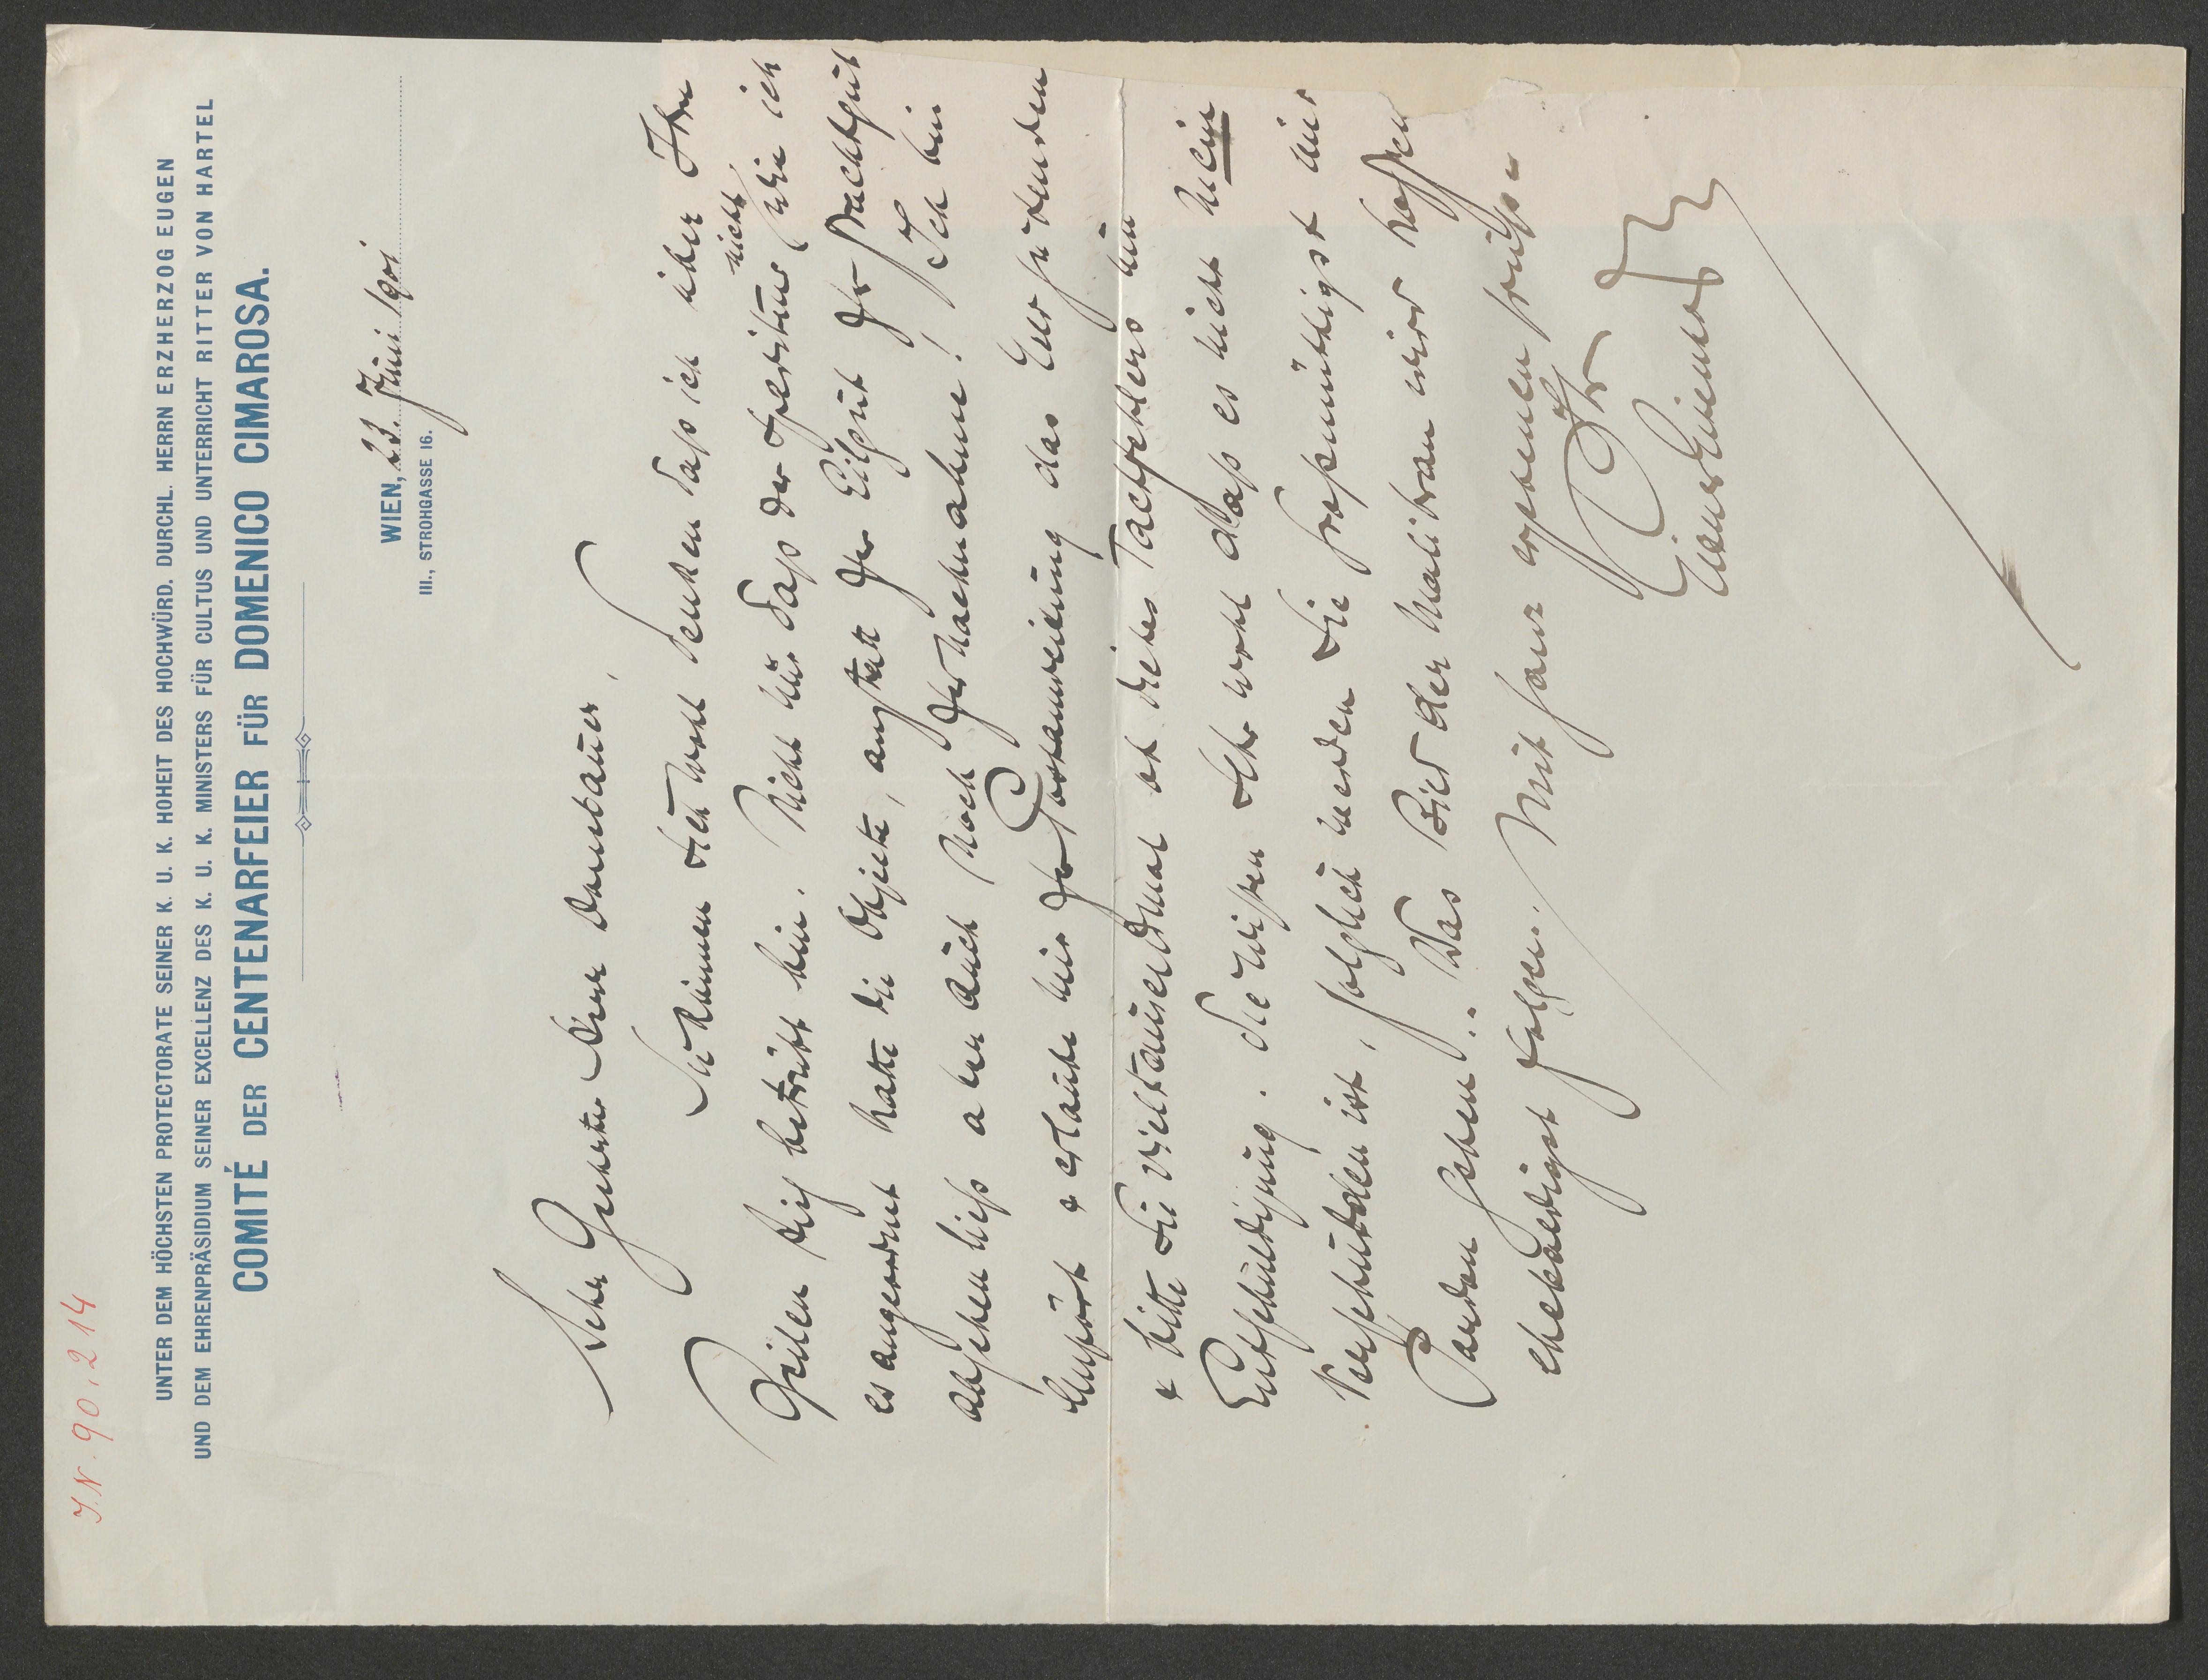 J.N. 90.214
UNTER DEM HÖCHSTEN PROTECTORATE SEINER K. U. K. HOHEIT DES HOCHWÜRD. DURCHL. HERRN ERZHERZOG EUGEN
UND DEM EHRENPRÄSIDIUM SEINER EXCELLENZ DES K. U. K. MINISTERS FÜR CULTUS UND UNTERRICHT RITTER VON HARTEL
COMITÉ DER CENTENARFEIER FÜR DOMENICO CIMAROSA.
WIEN, 23. Juni 1901
III., STROHGASSE 16.
Sehr Geehrter Herr
Sie können sich wohl denken dass ich über Ihre
Zeilen tief betrübt bin. Nicht nur dass der Spediteur nicht wie ich
es angeordnet hatte die Objecte, anstatt per Eilgut per Frachtgut
abgehen liess aber auch noch per Nachnahme! Ich bin
empört & erlaube mir per Postanweisung das
& bitte Sie vieltausendmal ob dieses Tactfehlers um
Entschuldigung. Sie wissen sehr wohl dass es nicht mein
Verschulden ist, folglich werden Sie grossmüthigst mir
Pardon geben!. Das Bild der Malibran wird
folgen. Mit ganz ergebenen
Ihr